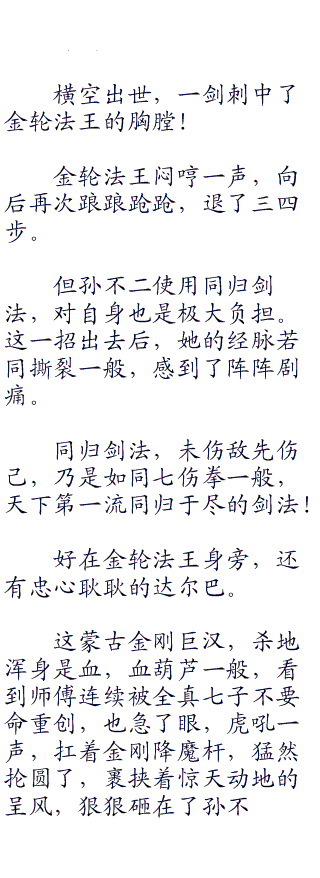 横空出世，一剑刺中了
金轮法王的胸膛！
金轮法王闷哼一声，向
后再次踉踉跄跄，退了三四
步。
但孙不二使用同归剑
法，对自身也是极大负担。
这一招出去后，她的经脉若
同撕裂一般，感到了阵阵剧
痛。
同归剑法，未伤敌先伤
己，乃是如同七伤拳一般，
天下第一流同归于尽的剑法！
好在金轮法王身旁，还
有忠心耿耿的达尔巴。
这蒙古金刚巨汉，杀地
浑身是血，血葫芦一般，看
到师傅连续被全真七子不要
命重创，也急了眼，虎吼一
声，扛着金刚降魔杆，猛然
抡圆了，裹挟着惊天动地的
呈风，狠狠砸在了孙不